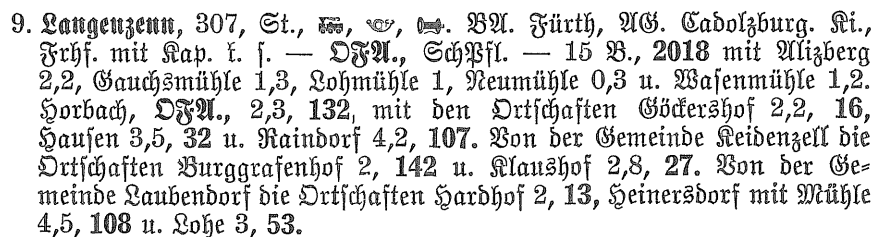 9. Langenzenn, 307, St., 🚂, 📯, . BA. Fürth, AG. Cadolzburg. Ki.,
Frhf. mit Kap. k. s. — OFA., SchPfl. — 15 B., 2018 mit Alizberg
2,2, Gauchsmühle 1,3, Lohmühle 1, Neumühle 0,3 u. Wasenmühle 1,2.
Horbach, OFA., 2,3, 132, mit den Ortschaften Göckershof 2,2, 16,
Hausen 3,5, 32 u. Raindorf 4,2, 107. Von der Gemeinde Keidenzell die
Ortschaften Burggrafenhof 2, 142 u. Klaushof 2,8, 27. Von der Ge-
meinde Laubendorf die Ortschaften Hardhof 2, 13, Heinersdorf mit Mühle
4,5, 108 u. Lohe 3, 53.